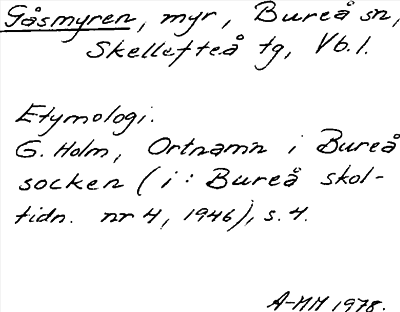 Gåsmyren, myr, Bureå sn,
Skellefteå tg, Vb.l.
Etymologi.
G. Holm, Ortnamn i Bureå
socken (i: Bureå skol-
tidn. nr 4, 1946), s. 4.
A-MM 1978.